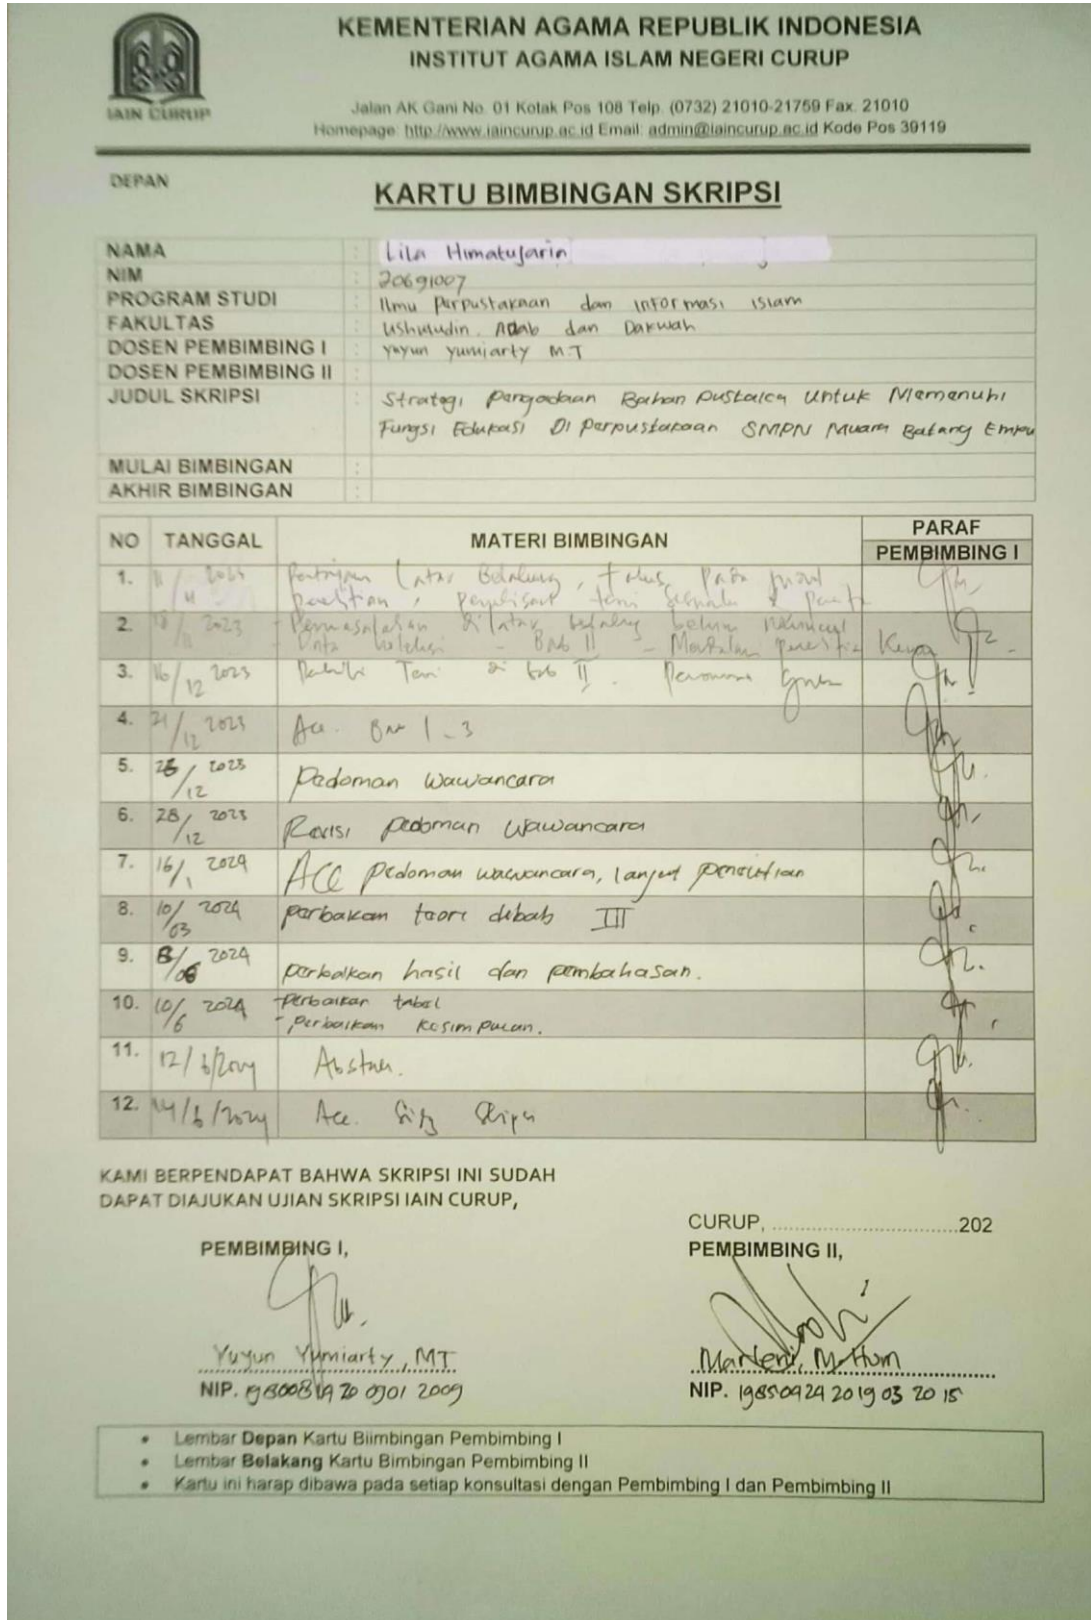 KEMENTERIAN AGAMA REPUBLIK INDONESIA
INSTITUT AGAMA ISLAM NEGERI CURUP
IAIN CURUP
Jalan AK Gani No. 01 Kotak Pos 108 Telp. (0732) 21010-21759 Fax. 21010
Homepage: http://www.iaincurup.ac.id Email: admin@iaincurup.ac.id Kode Pos 39119
DEPAN
KARTU BIMBINGAN SKRIPSI
NAMA : Lila Himatujarin
NIM : 20691007
PROGRAM STUDI : Ilmu Perpustakaan dan informasi islam
FAKULTAS : Ushuludin. Adab dan Dakwah
DOSEN PEMBIMBING I : Yuyun Yumiarty M.T
DOSEN PEMBIMBING II :
JUDUL SKRIPSI : Strategi Pengadaan Bahan Pustaka Untuk Memenuhi
Fungsi Edukasi Di Perpustakaan SMPN Muara Batang Empu
MULAI BIMBINGAN :
AKHIR BIMBINGAN :
NO TANGGAL MATERI BIMBINGAN PARAF
PEMBIMBING I
1. Latar Belakang,
2. 2023 - Permasalahan dilatar belakang belum
- Bab II -
3. 16/12 2023 di bab II.
4. 21/12 2023 Acc. Bab 1-3
5. /12 2023 Pedoman wawancara
6. 28/12 2023 Revisi pedoman wawancara
7. 16/1 2024 ACC pedoman wawancara, lanjut penelitian
8. 10/03 2024 perbaikan teori dibab III
9. 8/06 2024 perbaikan hasil dan pembahasan.
10. 10/6 2024 -perbaikan tabel
- perbaikan kesimpulan.
11. 12/6/2024 Abstrak.
12. 14/6/2024 Acc. Skripsi
KAMI BERPENDAPAT BAHWA SKRIPSI INI SUDAH
DAPAT DIAJUKAN UJIAN SKRIPSI IAIN CURUP,
CURUP, ..............................202
PEMBIMBING I, PEMBIMBING II,
Yuyun Yumiarty, MT Marleni, M.Hum
NIP. 19800819 20 0901 2009 NIP. 19850424 2019 03 2015
• Lembar Depan Kartu Biimbingan Pembimbing I
• Lembar Belakang Kartu Bimbingan Pembimbing II
• Kartu ini harap dibawa pada setiap konsultasi dengan Pembimbing I dan Pembimbing II